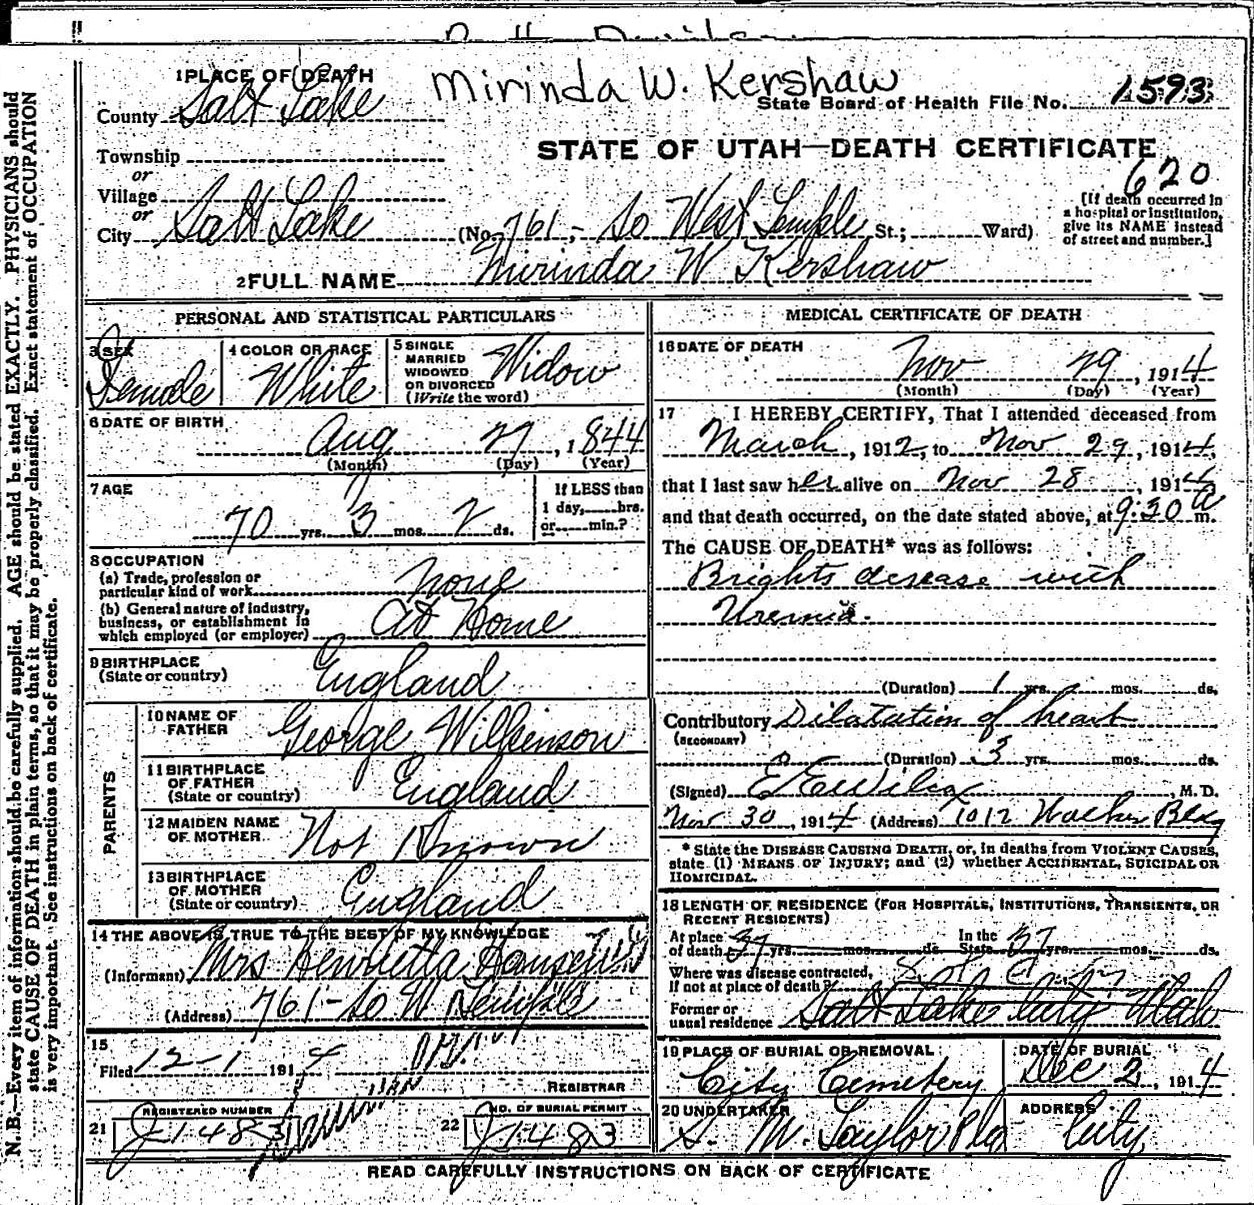 Mirinda W. Kershaw
1 PLACE OF DEATH
County Salt Lake
State Board of Health File No. 1593
Township
STATE OF UTAH—DEATH CERTIFICATE
620
or
Village
or
City Salt Lake (No. 761, - So West Temple St.; Ward)
[If death occurred in
a hospital or institution,
give its NAME instead
of street and number.]
2 FULL NAME Mirinda W Kershaw
PERSONAL AND STATISTICAL PARTICULARS
3 SEX Female
4 COLOR OR RACE White
5 SINGLE
MARRIED
WIDOWED
OR DIVORCED
(Write the word) Widow
6 DATE OF BIRTH
Aug 27, 1844
(Month) (Day) (Year)
7 AGE
70 yrs. 3 mos. 2 ds.
If LESS than
1 day, hrs.
or min.?
8 OCCUPATION
(a) Trade, profession or
particular kind of work none
(b) General nature of industry,
business, or establishment in
which employed (or employer) At Home
9 BIRTHPLACE
(State or country) England
PARENTS
10 NAME OF
FATHER George Wilkinson
11 BIRTHPLACE
OF FATHER
(State or country) England
12 MAIDEN NAME
OF MOTHER Not Known
13 BIRTHPLACE
OF MOTHER
(State or country) England
14 THE ABOVE IS TRUE TO THE BEST OF MY KNOWLEDGE
(Informant) Mrs Henrietta
(Address) 761 - So W Temple
15
Filed 12-1 1914
REGISTRAR
REGISTERED NUMBER
21 J1483
NO. OF BURIAL PERMIT
22 J1483
MEDICAL CERTIFICATE OF DEATH
16 DATE OF DEATH
Nov 29, 1914
(Month) (Day) (Year)
17 I HEREBY CERTIFY, That I attended deceased from
March, 1912, to Nov 29, 1914,
that I last saw her alive on Nov 28, 1914
and that death occurred, on the date stated above, at 9:30 a m.
The CAUSE OF DEATH* was as follows:
Brights disease with
Uremia.
(Duration) 1 yrs. mos. ds.
Contributory Dilatation of heart
(SECONDARY)
(Duration) 3 yrs. mos. ds.
(Signed) E E Wilcox, M.D.
Nov 30, 1914 (Address) 1012 Walker Bldg
* State the DISEASE CAUSING DEATH, or, in deaths from VIOLENT CAUSES,
state (1) MEANS OF INJURY; and (2) whether ACCIDENTAL, SUICIDAL OR
HOMICIDAL.
18 LENGTH OF RESIDENCE (FOR HOSPITALS, INSTITUTIONS, TRANSIENTS, OR
RECENT RESIDENTS)
At place
of death 37 yrs. mos. ds. In the
State 37 yrs. mos. ds.
Where was disease contracted,
If not at place of death?
Former or
usual residence Salt Lake City Utah
19 PLACE OF BURIAL OR REMOVAL
City Cemetery
DATE OF BURIAL
Dec 2, 1914
20 UNDERTAKER
S. M. Taylor
ADDRESS
City
READ CAREFULLY INSTRUCTIONS ON BACK OF CERTIFICATE
N. B.—Every item of information should be carefully supplied. AGE should be stated EXACTLY. PHYSICIANS should
state CAUSE OF DEATH in plain terms, so that it may be properly classified. Exact statement of OCCUPATION
is very important. See instructions on back of certificate.